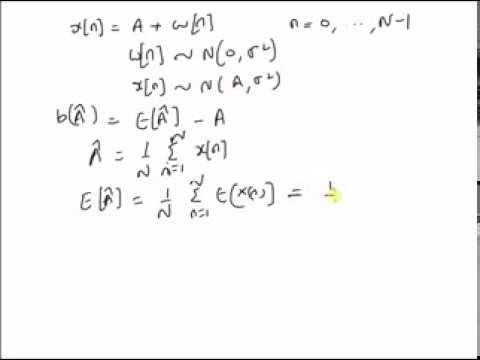 x[n] = A + w[n] n = 0, ..., N-1
w[n] ~ N(0, σ²)
x[n] ~ N(A, σ²)
b(Â) = E[Â] - A
Â = 1/N Σ_{n=1}^{N} x[n]
E[Â] = 1/N Σ_{n=1}^{N} E[x[n]] = 1/